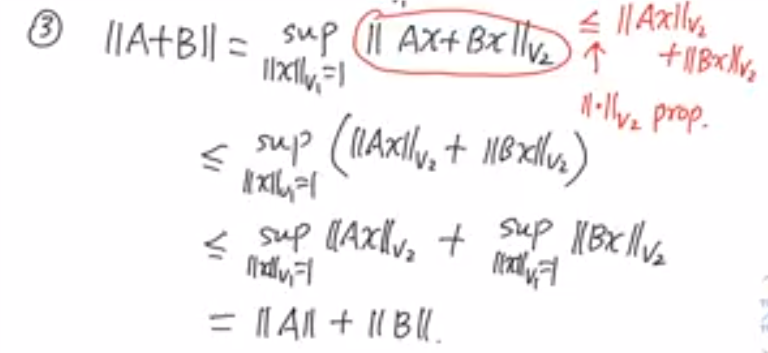 ③ ||A+B|| = sup_{||x||_{V₁}=1} || Ax+Bx ||_{V₂} ≤ ||Ax||_{V₂} + ||Bx||_{V₂}
↑
||·||_{V₂} prop.
≤ sup_{||x||_{V₁}=1} (||Ax||_{V₂} + ||Bx||_{V₂})
≤ sup_{||x||_{V₁}=1} ||Ax||_{V₂} + sup_{||x||_{V₁}=1} ||Bx||_{V₂}
= ||A|| + ||B||.